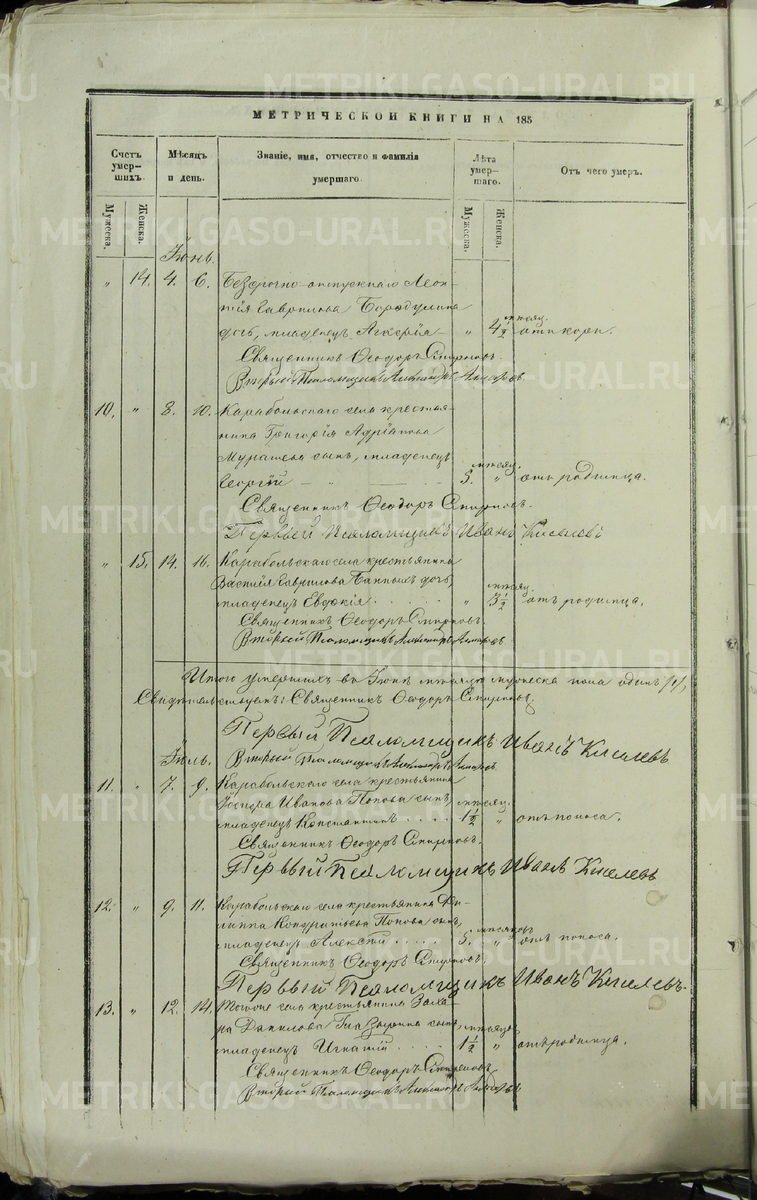 METRIKI.GASO-URAL.RU
МЕТРИЧЕСКОЙ КНИГИ НА 185
Счетъ умер-шихъ.
Мѣсяцъ и день.
Званіе, имя, отчество и фамилія умершаго.
Лѣта умер-шаго.
Отъ чего умеръ.
Мужеска.
Женска.
Мужеска.
Женска.
Іюнь.
" 14. 4. 6. Безсрочно-отпускнаго Леон-
тія Гаврилова Бородулина
мѣсяц.
дочь, младенецъ " 4 1/2 отъ кори.
Священникъ Ѳеодоръ Смирновъ.
Вторый Псаломщикъ
10. " 8. 10. Карабольскаго села крестья-
нина Григорія Адріанова
сынъ, младенецъ
мѣсяц.
Георгій 5. " отъ родимца.
Священникъ Ѳеодоръ Смирновъ.
Первый Псаломщикъ Иванъ Киселевъ
" 15. 14. 16. Карабольскаго села крестьянина
Василія Гаврилова дочь,
мѣсяц.
младенецъ Евдокія " 3 1/2 отъ родимца.
Священникъ Ѳеодоръ Смирновъ.
Вторый Псаломщикъ
Итого умершихъ въ Іюнѣ мѣсяцѣ мужеска пола одинъ /1/,
Свидѣтельствуемъ: Священникъ Ѳеодоръ Смирновъ.
Первый Псаломщикъ Иванъ Киселевъ
Іюль. Вторый Псаломщикъ
11. " 7. 9. Карабольскаго села крестьянина
Иванова Попова сынъ, мѣсяц.
младенецъ Константинъ 1 1/2 " отъ поноса.
Священникъ Ѳеодоръ Смирновъ.
Первый Псаломщикъ Иванъ Киселевъ
12. " 9. 11. Карабольскаго села крестьянина Фи-
липпа Кондратьева Попова сынъ, мѣсяцовъ
младенецъ Алексѣй 5. " отъ поноса.
Священникъ Ѳеодоръ Смирновъ.
Первый Псаломщикъ Иванъ Киселевъ.
13. " 12. 14. Тогоже села крестьянина Заха-
ра Данилова сынъ, мѣсяцъ
младенецъ Игнатій 1 1/2 " отъ родимца.
Священникъ Ѳеодоръ Смирновъ.
Вторый Псаломщикъ